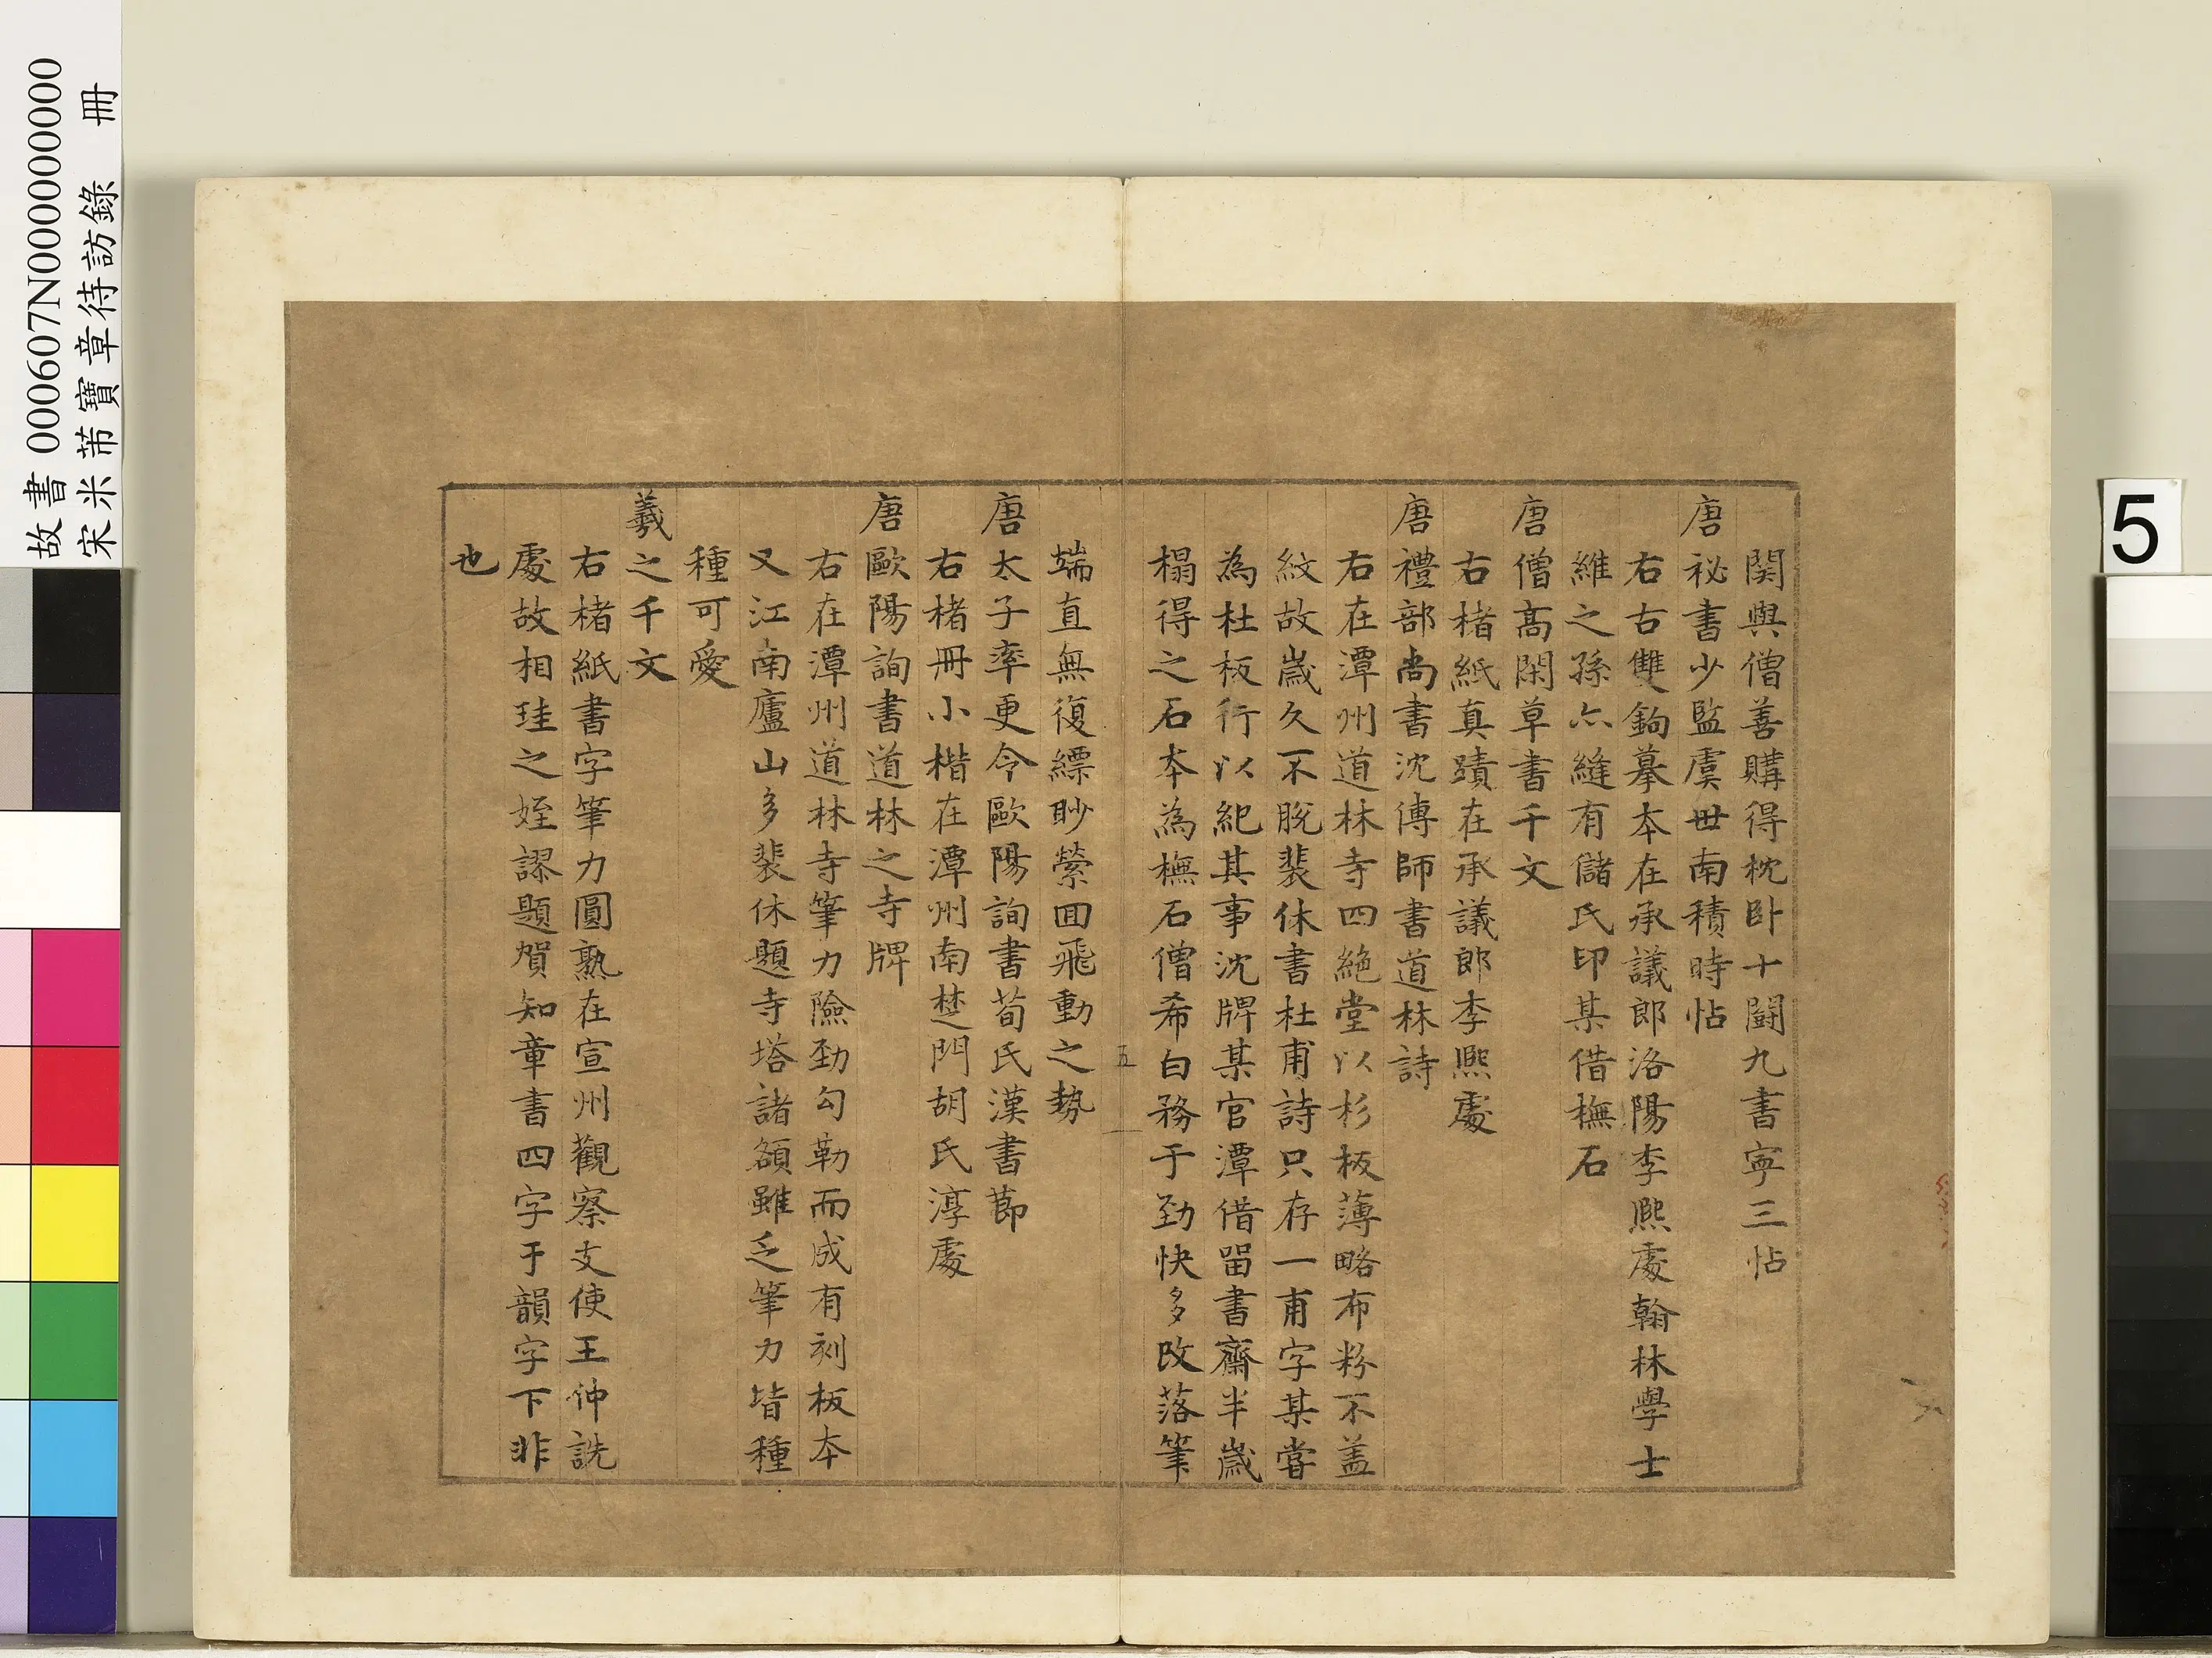 関與僧善購得枕卧十闘九書寜三帖
唐祕書少監虞世南積時帖
右古雙鉤摹本在承議郎洛陽李熈處翰林學士
維之孫亦縫有儲氏印某借橅石
唐僧髙閑草書千文
右楮紙真蹟在承議郎李熈處
唐禮部尚書沈傳師書道林詩
右在潭州道林寺四絶堂以杉板薄略布粉不盖
紋故嵗久不脫裴休書杜甫詩只存一甫字某嘗
為杜板行以紀其事沈牌某官潭借留書齋半嵗
榻得之石本為橅石僧希白務于勁快多改落筆
端直無復縹眇縈囬飛動之勢
五
唐太子率更令歐陽詢書荀氏漢書莭
右楮冊小楷在潭州南楚門胡氏淳處
唐歐陽詢書道林之寺牌
右在潭州道林寺筆力險勁勾勒而成有刻板本
又江南廬山多裴休題寺塔諸額雖乏筆力皆種
種可愛
羲之千文
右楮紙書字筆力圓熟在宣州觀察支使王仲詵
處故相珪之姪謬題賀知章書四字于韻字下非
也
故書 000607N000000000
宋米芾寶章待訪錄 冊
5